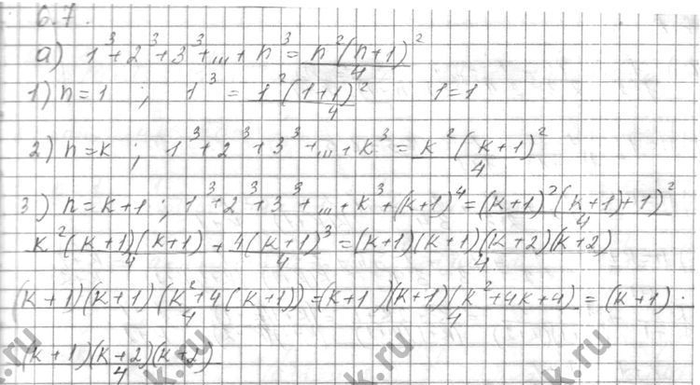 6.7.
а) 1³+2³+3³+...+n³ = n²(n+1)²/4
1) n=1 ; 1³ = 1²(1+1)²/4 1=1
2) n=k ; 1³+2³+3³+...+k³ = k²(k+1)²/4
3) n=k+1 ; 1³+2³+3³+...+k³+(k+1)⁴ = (k+1)²((k+1)+1)²/4
k²(k+1)(k+1)/4 + 4(k+1)³/4 = (k+1)(k+1)(k+2)(k+2)/4
(k+1)(k+1)(k²+4(k+1))/4 = (k+1)(k+1)(k²+4k+4)/4 = (k+1)·
(k+1)(k+2)(k+2)/4
.ru
k.ru
k.ru